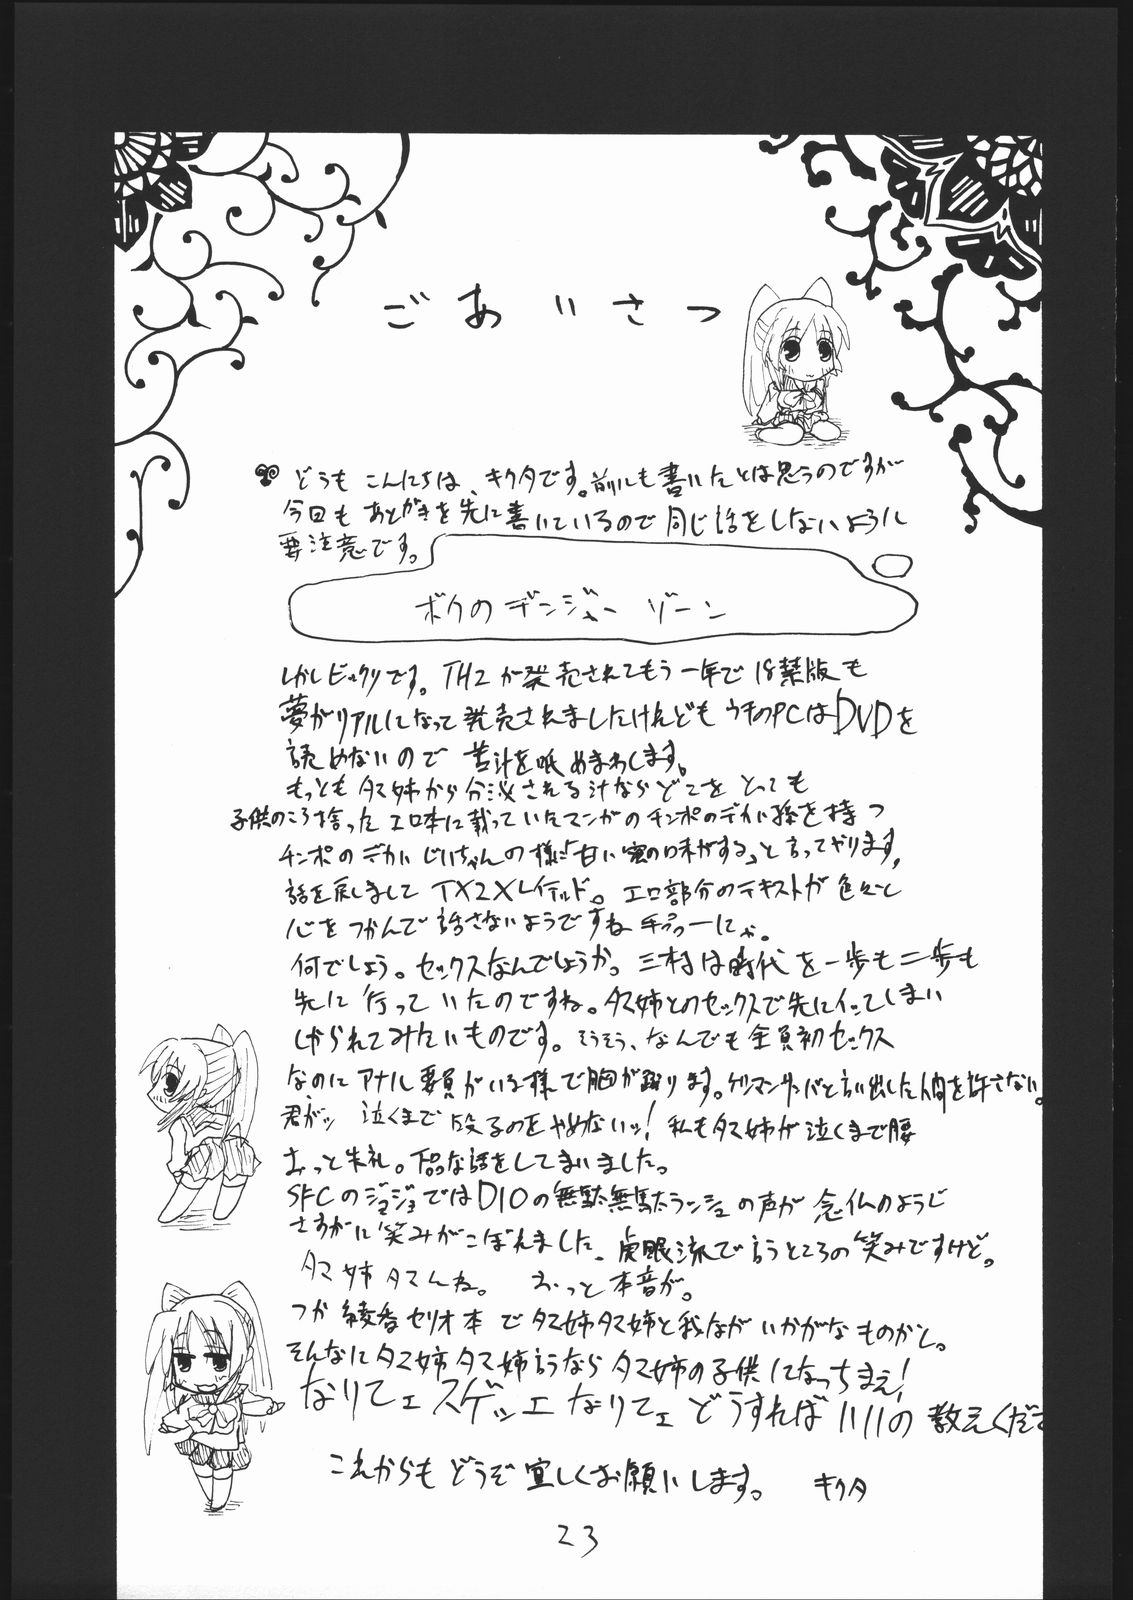 ごあいさつ
どうも こんにちは、キクタです。前にも書いたとは思うのですが
今回も あとがきを先に書いているので 同じ話をしないように
要注意です。
ボクのデンジャー ゾーン
しかしビックリです。TH2が発売されてもう一年で18禁版も
夢がリアルになって発売されましたけれども ウチのPCはDVDを
読めないので 苦汁を眠めまわします。
もっとも タマ姉から分泌される汁ならどこを とっても
子供のころ拾った エロ本に載っていたマンガのチンポのデカい孫を持つ
チンポのデカいじいちゃんの様に「甘い蜜の味がする」と言ってやります。
話を戻しまして TX2X 。エロ部分のテキストが色々と
心を つかんで 話さないようですね
何でしょう。セックスなんでしょうか。三村は時代を一歩も二歩も
先に 行って いたのですね。タマ姉とのセックスで先にイッてしまい
しかられてみたいものです。そうそう、なんでも全員初セックス
なのに アナル要員がいる様で胸が踊ります。ゲリマンサンバと言い出した人間を許さない。
君がッ 泣くまで 殴るのをやめないッ! 私もタマ姉が泣くまで腰
おっと失礼。下品な話をしてまいました。
SFCのジョジョではDIOの無駄無駄ラッシュの声が 念仏のようじ
さすがに笑みがこぼれました、虎眼流で言うところの笑みですけど。
タマ姉 タマんね。 おっと本音が。
つか 綾香セリオ本 で タマ姉タマ姉と我ながらいかがなものかと。
そんなにタマ姉タマ姉言うなら タマ姉の子供になっちまえ!
なりてェ スゲッェ なりてェ どうすれば いいの 教えくだ
これからも どうぞ 宜しくお願いします。 キクタ
23